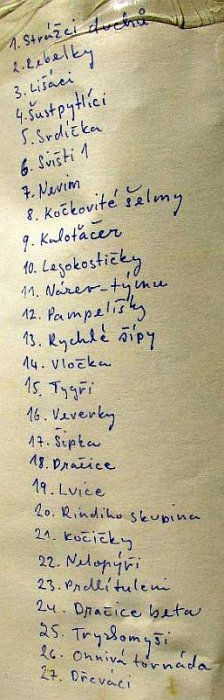 1. Strážci duchů
2. Rebelky
3. Lišáci
4. Šustpytlíci
5. Srdíčka
6. Svišti 1
7. Nevim
8. Kočkovité šelmy
9. Kaloťačer
10. Legokostičky
11. Název-týmu
12. Pampelišky
13. Rychlé šípy
14. Vločka
15. Tygři
16. Veverky
17. Šipka
18. Dračice
19. Lvice
20. Rindiho skupina
21. Kočičky
22. Netopýři
23. Prdlí tuleni
24. Dračice beta
25. Tryskomyši
26. Ohnivá tornáda
27. Dřeváci